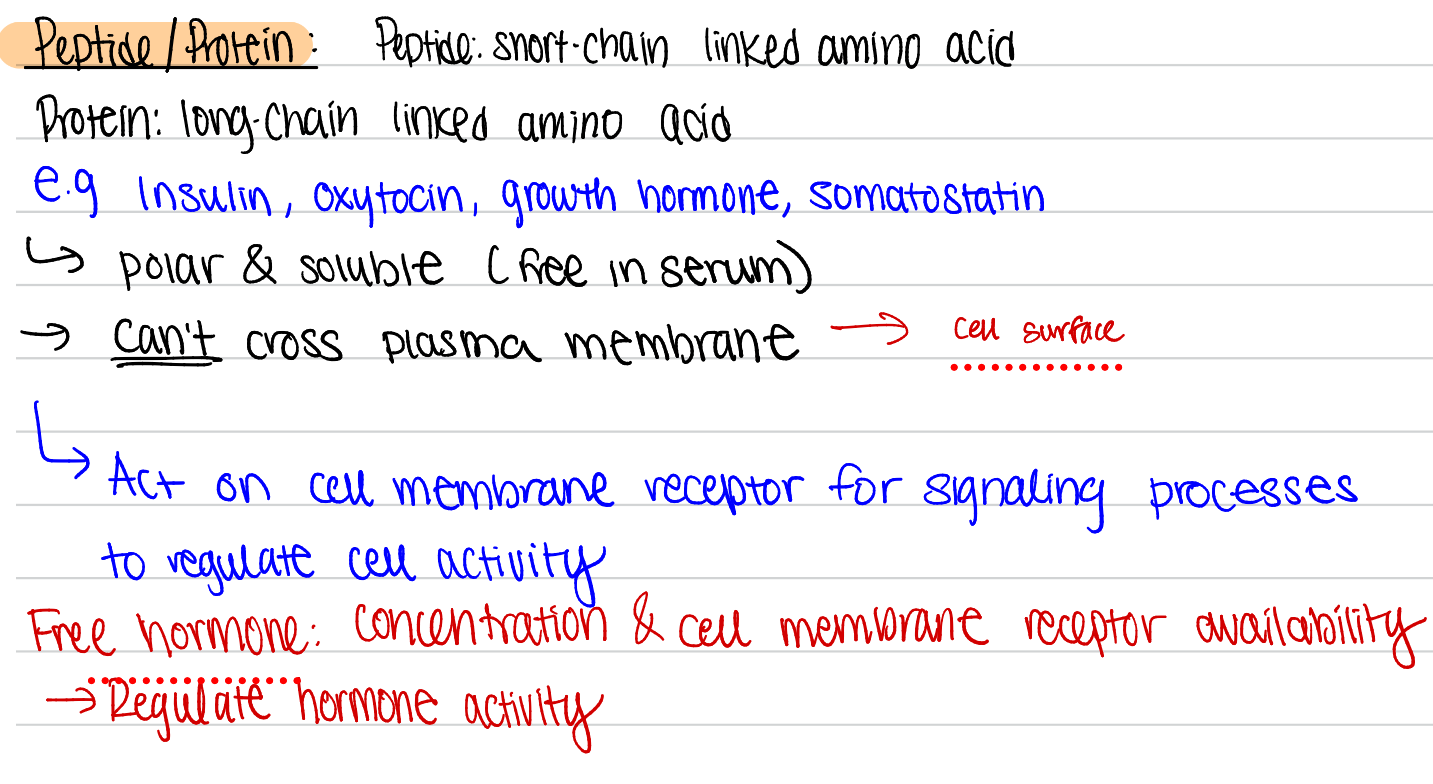 Peptide/Protein: Peptide: short-chain linked amino acid
Protein: long-chain linked amino acid
e.g Insulin, oxytocin, growth hormone, somatostatin
↳ polar & soluble (free in serum)
→ can't cross plasma membrane → cell surface
↳ Act on cell membrane receptor for signaling processes
to regulate cell activity
Free hormone: concentration & cell membrane receptor availability
→ Regulate hormone activity